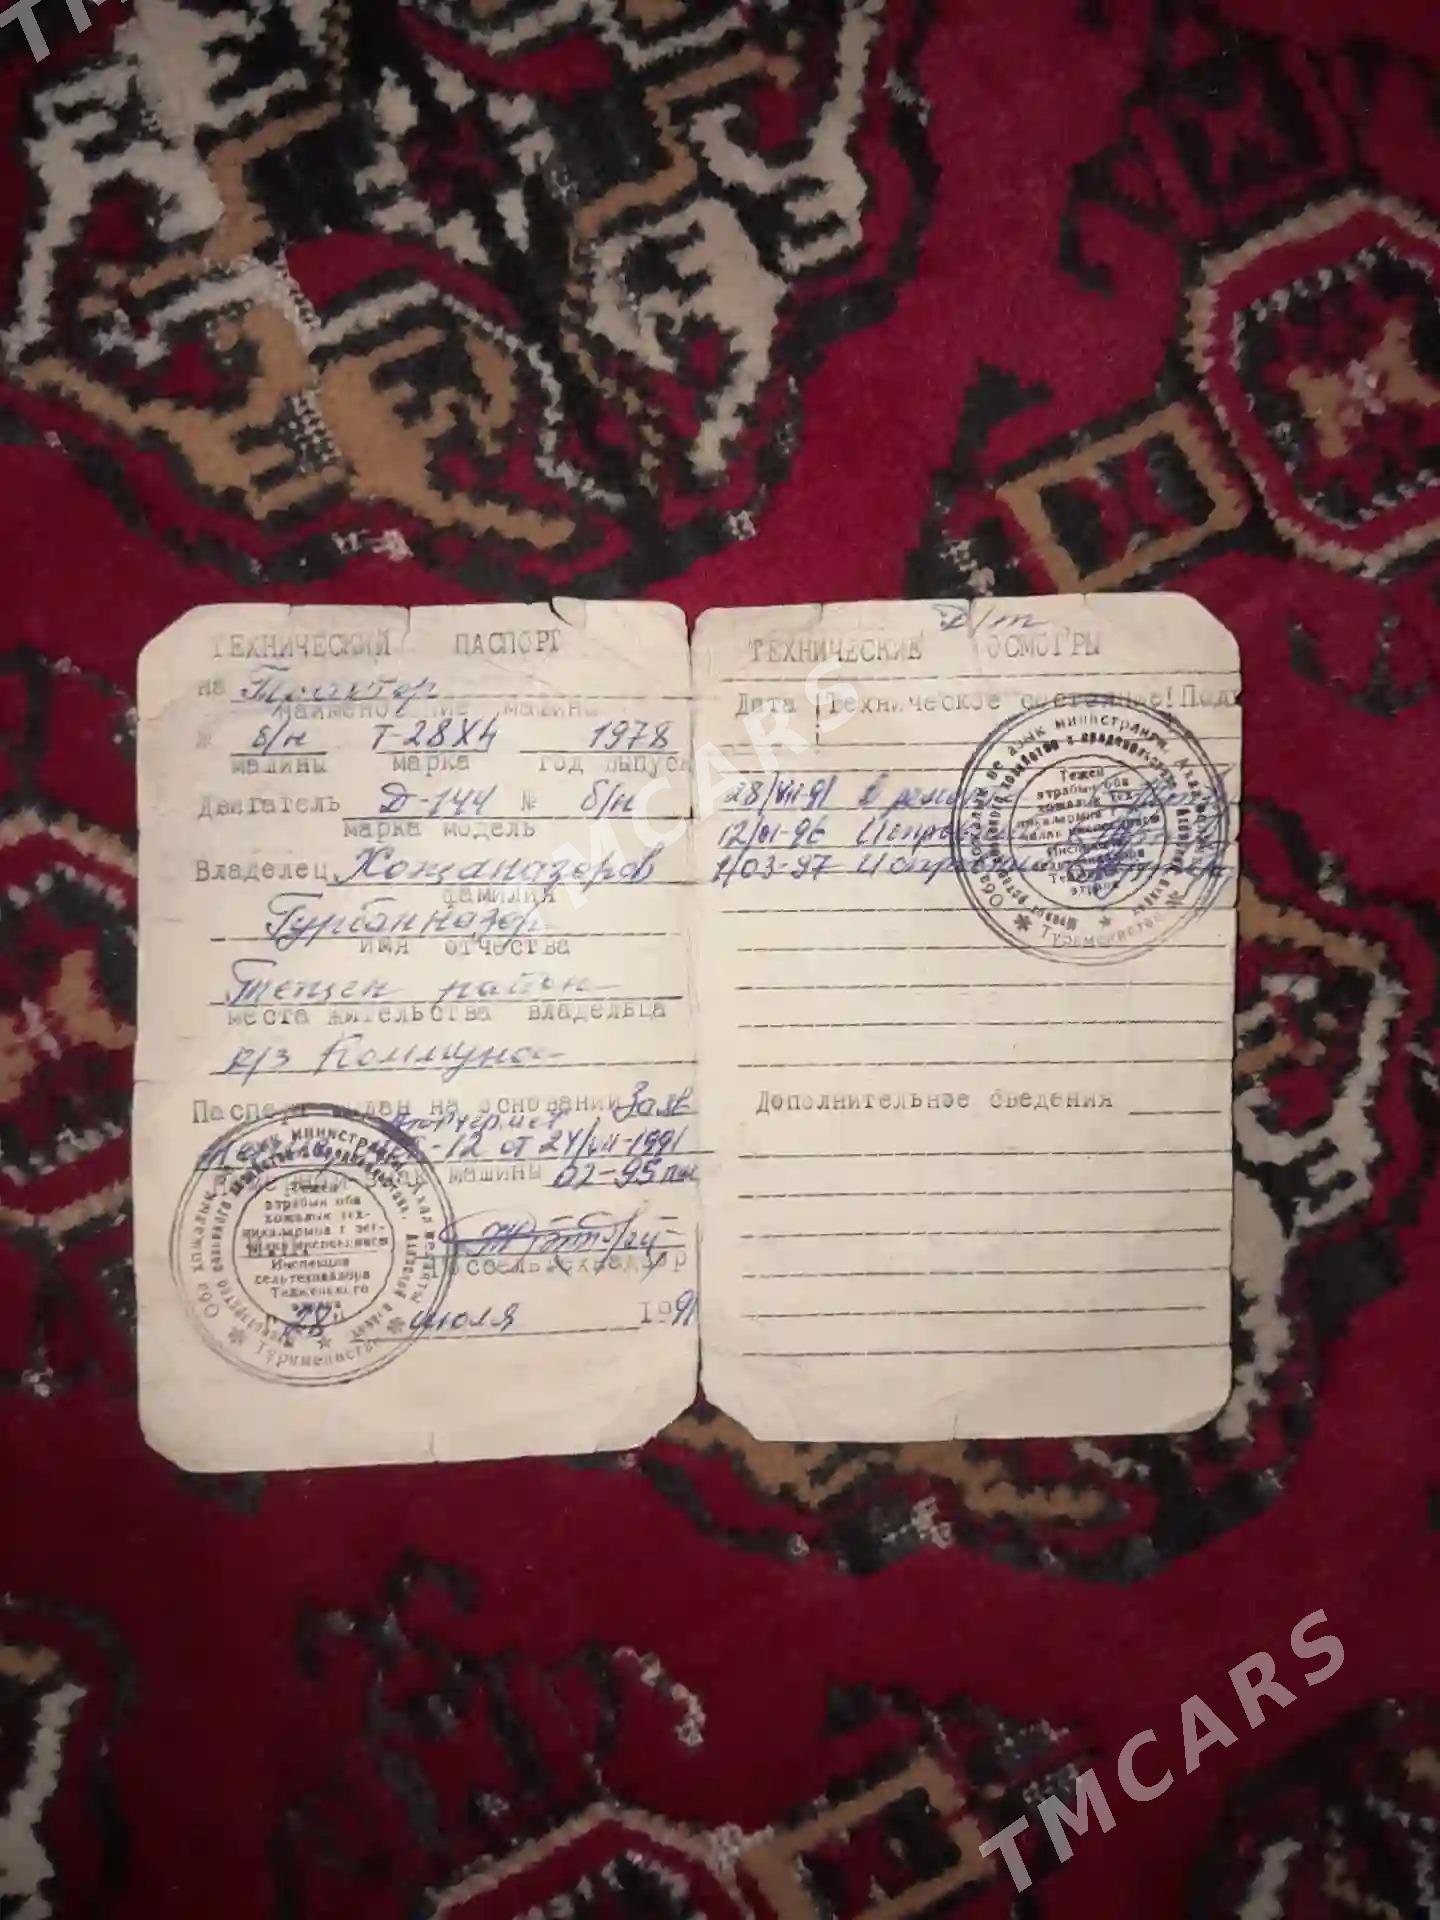 ТЕХНИЧЕСКИЙ ПАСПОРТ
на Трактор
наименование машины
№ б/н Т-28Х4 1978
машины марка год выпуск
Двигатель Д-144 № б/н
марка модель
Владелец Хожаназаров
фамилия
Гурбанназар
имя отчества
Тежен район
места жительства владельца
к/з Коммуна
Паспорт выдан на основании Заяв
Вторчермет
-12 от 24/VII-1991
знак машины 02-95
Госсельтехнадзор
28 июля 1991
Тежен
этрабын оба
хожалык тех-
Инспекция
сельтехнадзора
Тедженского
этрапа
Туркменистан
Д/т
ТЕХНИЧЕСКИЕ ОСМОТРЫ
Дата Техническое состояние! Под
28/VII-91 В ремонт
12/01-96 Исправен
1/03-97 Исправен
Тежен
этрабын оба
хожалык тех-
Туркменистан
Дополнительное сведения
TMCARS
TMCARS